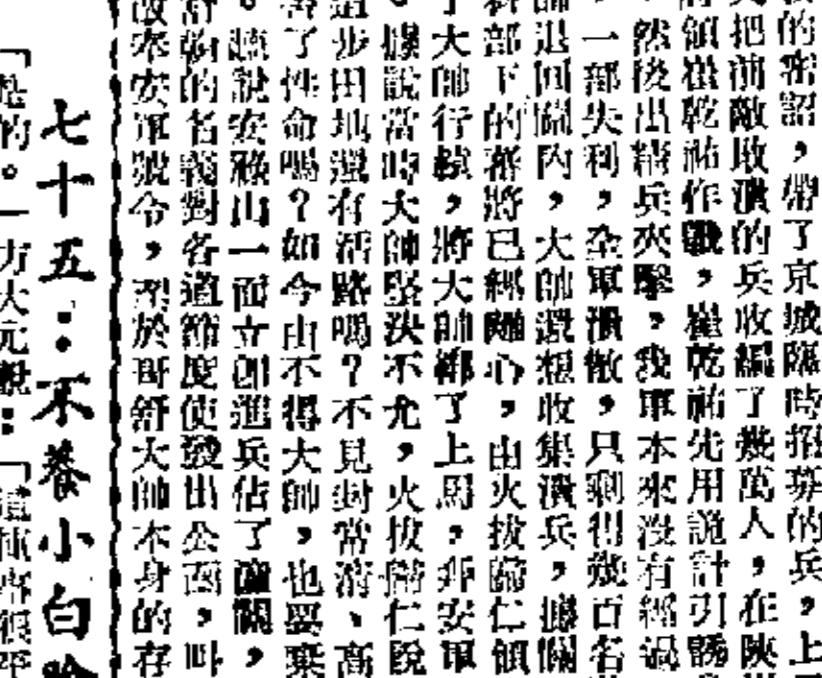 的密詔，帶了京城臨時招募的兵，上
把前敵敗潰的兵收編了幾萬人，在陝
領崔乾祐作戰，崔乾祐先用詭計引誘
然後出精兵夾擊，我軍本來沒有經過
，一部失利，全軍潰散，只剩得幾百名
退回關內，大帥還想收集潰兵，據關
部下的蕃將已經離心，由火拔歸仁領
了大帥行轅，將大帥綁了上馬，奔安軍
。據說當時大帥堅決不允，火拔歸仁說
這步田地還有活路嗎？不見封常清、高
了性命嗎？如今由不得大帥，也要棄
。聽說安祿山一面立刻進兵佔了潼關，
的名義對各道節度使發出公函，叫
改奉安軍號令，至於哥舒大帥本身的存
七十五：不養小白臉
「是的。」方大元說：「這